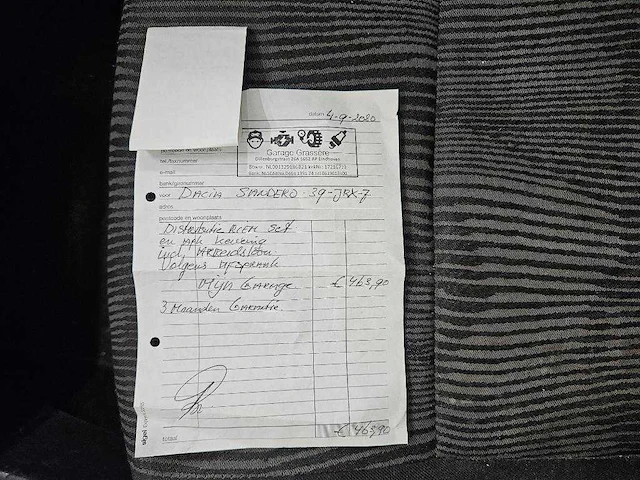 datum 4-9-2020
Garage Grassère
Dillenburgstraat 26A 5652 AP Eindhoven
postcode en woonplaats
tel./faxnummer
e-mail
bank/gironummer
voor DACIA SANDERO 39-JRX-7
adres
postcode en woonplaats
DISTRIBUTIE RIEM SET
en APK Keuring
incl, ARbeidsloon
Volgens AFSPRAAK
Mijn GARAGE € 463,90
3 Maanden GARANTIE.
sigel
totaal € 463,90